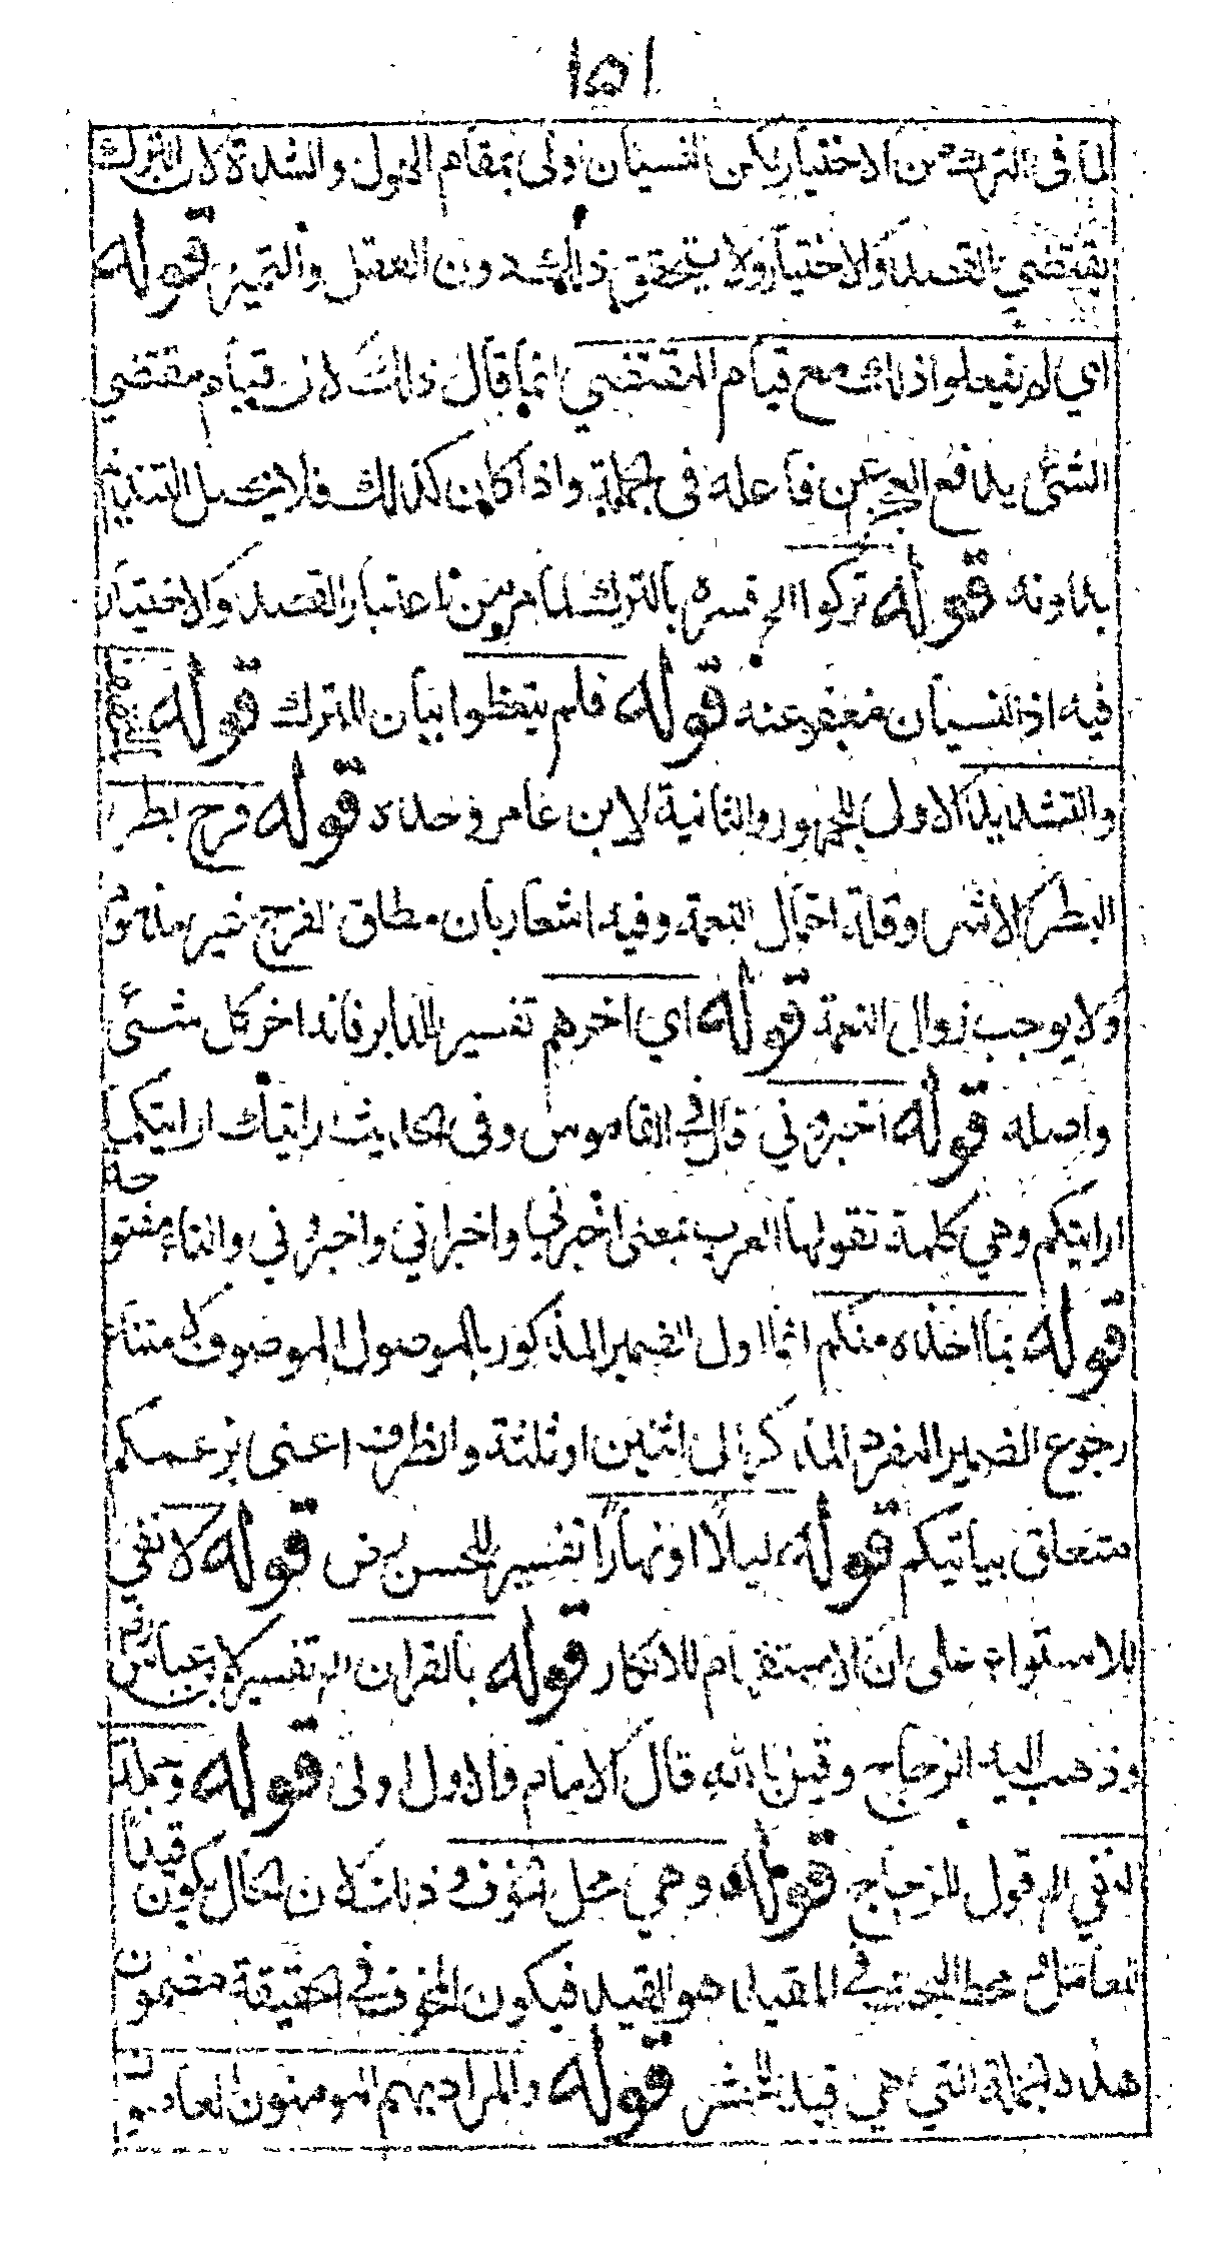 ١٥١
لما في الترك من الاختيار لكن النسيان اولى بمقام الهول والشدة لان الترك
يقتضي القصد والاختيار ولا يتحقق ذلك بدون العقل والتميز قوله
اي لم يفعلوا ذلك مع قيام المقتضي انما قال ذلك لان قيام مقتضي
الشئ يدفع العجز عن فاعله في الجملة واذا كان كذلك فلا يحصل التنديم
بدونه قوله تركوا الخ فسره بالترك لما مر من اعتبار القصد والاختيار
فيه اذ النسيان معفو عنه قوله فلم يتعظوا بيان للترك قوله بالتخفيف
والتشديد الاول للجمهور والثانية لابن عامر وحده قوله فرح بطر
البطر الاشر وقلة احتمال النعمة وفيه اشعار بان مطلق الفرح غير مذموم
ولا يوجب زوال النعمة قوله اي اخرهم تفسير للدابر فانه اخر كل شئ
واصله قوله اخبروني قال في القاموس وفي الحديث ارايتك ارايتكما
ارايتكم وهي كلمة تقولها العرب بمعنى اخبرني واخبراني واخبروني والتاء مفتوحة
قوله بما اخذه منكم انما اول الضمير المذكور بالموصول الموصوف لامتناع
رجوع الضمير المفرد المذكر الى اثنين او ثلثة والظرف اعني بزعمكم
متعلق بياتيكم قوله ليلا او نهارا تفسير للحسن رض قوله لا نفي
للاستواء على ان الاستفهام للانكار قوله بالقران الخ تفسير لابن عباس رض
وذهب اليه الزجاج وقيل بالله قال الامام فالاول اولى قوله وجملة
النفي الخ قول للزجاج قوله وهي محل الخوف وذلك لان الحال يكون قيدا
لعاملها ومحط الحجة في المقيد هو القيد فيكون المخوف في الحقيقة مضمون
هذه الجملة التي هي قيد للحشر قوله والمراد بهم المومنون العاصون